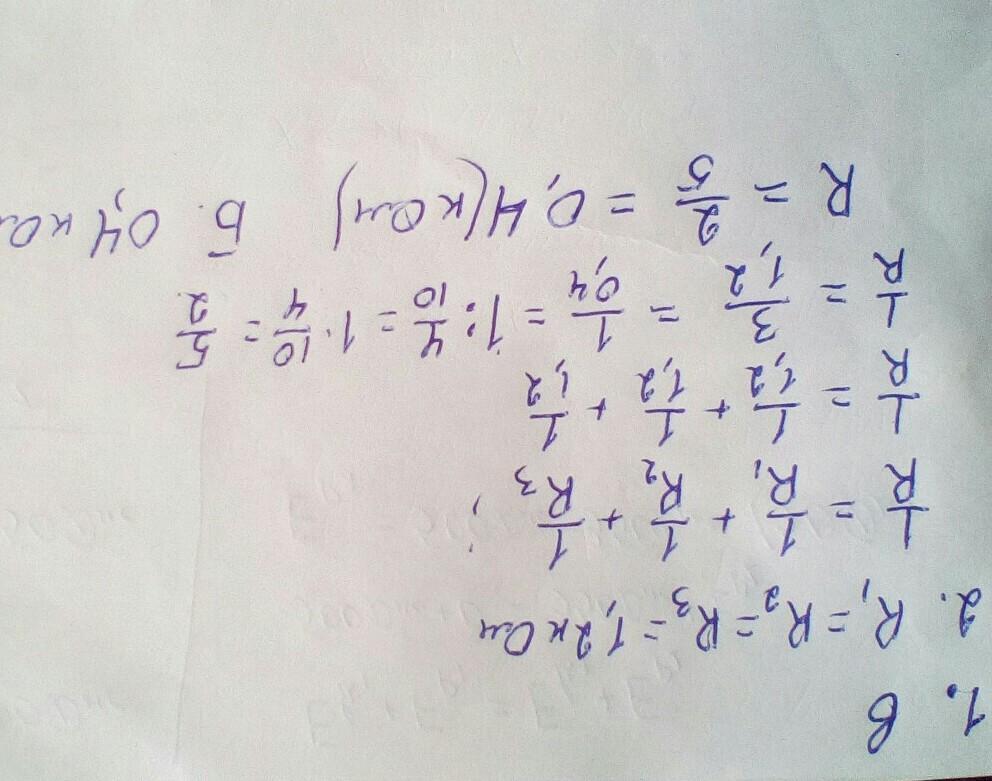 1. В
2. R₁ = R₂ = R₃ = 1,2 кОм
1/R = 1/R₁ + 1/R₂ + 1/R₃ ;
1/R = 1/1,2 + 1/1,2 + 1/1,2
1/R = 3/1,2 = 1/0,4 = 1 : 4/10 = 1 · 10/4 = 5/2
R = 2/5 = 0,4 (кОм) Б. 0,4 кО